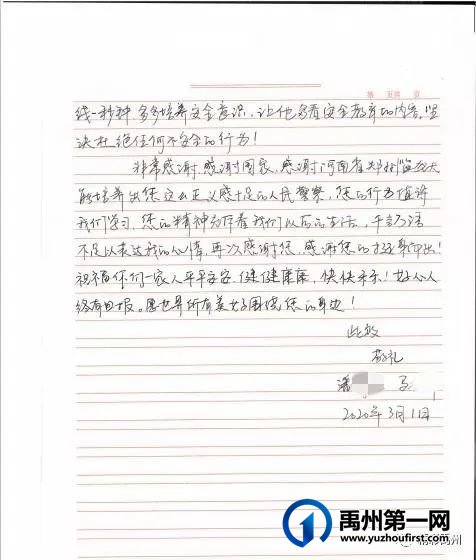 第 页共 页
线一秒钟 多多培养安全意识,让他多看安全教育的内容,坚
决杜绝任何不安全的行为!
非常感谢,感谢国家,感谢河南省郑州
能培养出您这么正义感十足的人民警察,您的行为值得
我们学习,您的精神 着我们以后的生活,千言万语
不足以表达我的心情,再次感谢您,感谢您的挺身而出!
祝福你们一家人平平安安,健健康康,快快乐乐!好人
终有回报。愿世界所有美好围绕您的身边!
此致
敬礼
潘
2020年3月11日
禹州第一网
www.yuzhoufirst.com